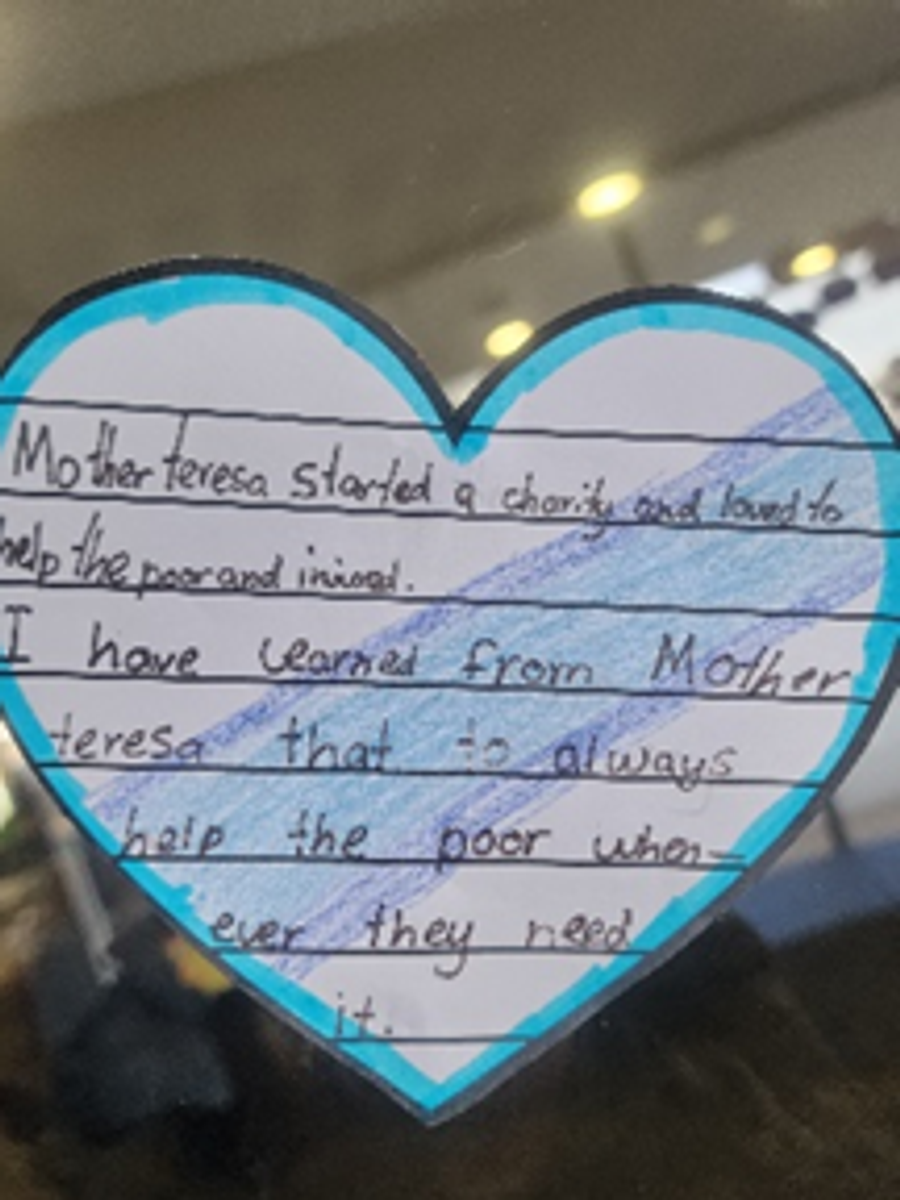 Mother teresa started a charity and loved to
help the poor and
I have learned from Mother
teresa that to always
help the poor when-
ever they need
it.